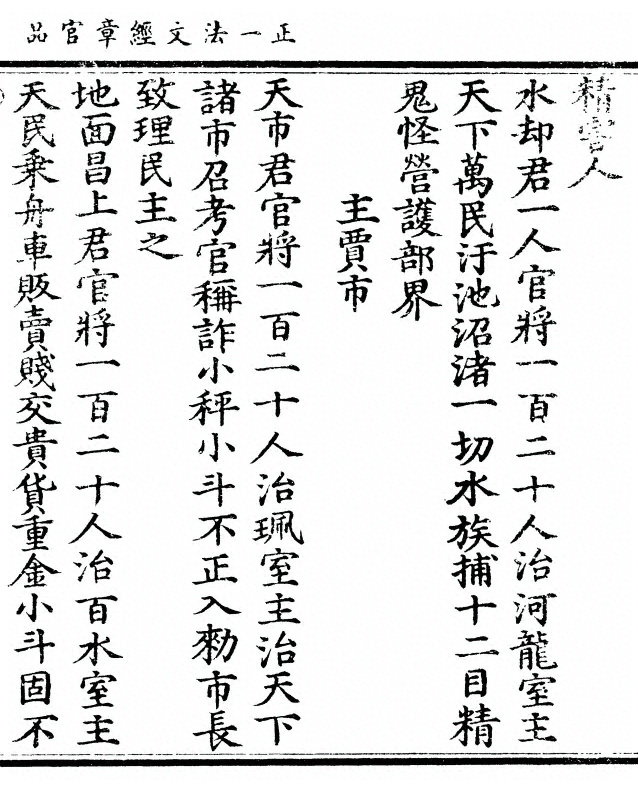 正一法文經章官品
精害人
水却君一人官將一百二十人治河龍室主
天下萬民汙池沼渚一切水族捕十二目精
鬼怪營護部界
主賈市
天市君官將一百二十人治珮室主治天下
諸市召考官稱詐小秤小斗不正入勑市長
致理民主之
地面昌上君官將一百二十人治百水室主
天民乗舟車販賣賤交貴貨重金小斗固不